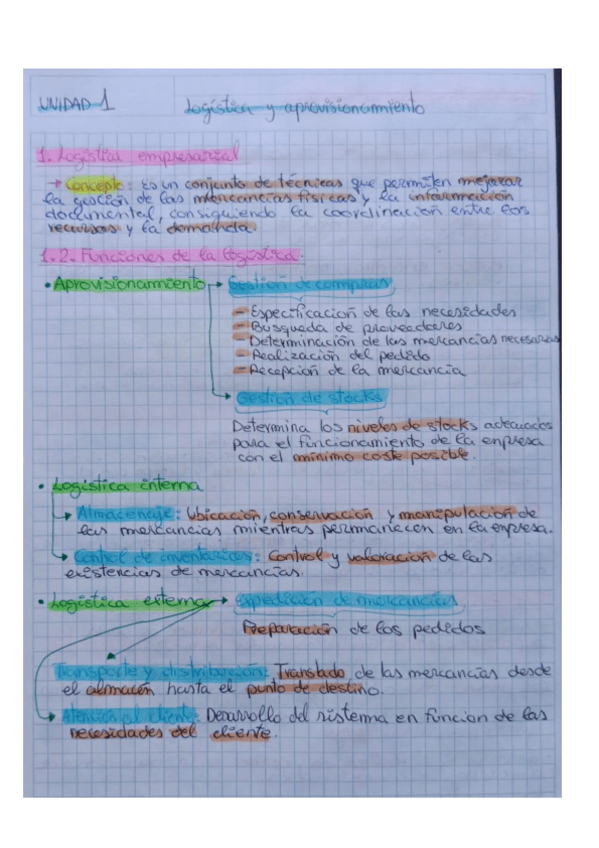 UNIDAD 1 Logística y aprovisionamiento
1. Logística empresarial
→ Concepto: Es un conjunto de técnicas que permiten mejorar
la gestión de las mercancías físicas y la información
documental, consiguiendo la coordinación entre los
recursos y la demanda.
1.2. Funciones de la logística.
• Aprovisionamiento → Gestión de compras
- Especificación de las necesidades
- Busqueda de proveedores
- Determinación de las mercancías necesarias
- Realización del pedido
- Recepción de la mercancía
→ Gestión de stocks
Determina los niveles de stocks adecuados
para el funcionamiento de la empresa
con el mínimo coste posible.
• Logística interna
→ Almacenaje: Ubicación, conservación y manipulación de
las mercancías mientras permanecen en la empresa.
→ Control de inventarios: Control y valoración de las
existencias de mercancías.
• Logística externa → Expedición de mercancías
Preparación de los pedidos
Transporte y distribución: Translado de las mercancías desde
el almacén hasta el punto de destino.
→ Atención al cliente: Desarrollo del sistema en función de las
necesidades del cliente.